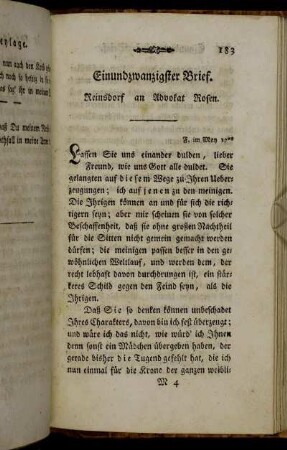 eylage.
183
Einundzwanzigster Brief.
Reinsdorf an Advokat Rosen.
F. im May 17**
Lassen Sie uns einander dulden, lieber
Freund, wie uns Gott alle duldet. Sie
gelangten auf diesem Wege zu Ihren Ueber-
zeugungen; ich auf jenen zu den meinigen.
Die Ihrigen können an und für sich die rich-
tigern seyn; aber mir scheinen sie von solcher
Beschaffenheit, daß sie ohne großen Nachtheil
für die Sitten nicht gemein gemacht werden
dürfen; die meinigen passen besser in den ge-
wöhnlichen Weltlauf, und werden dem, der
recht lebhaft davon durchdrungen ist, ein stär-
keres Schild gegen den Feind seyn, als die
Ihrigen.
Daß Sie so denken können unbeschadet
Ihres Charakters, davon bin ich fest überzeugt;
und wäre ich das nicht, wie würd' ich Ihnen
denn sonst ein Mädchen übergeben haben, der
gerade bisher die Tugend gefehlt hat, die ich
nun einmal für die Krone der ganzen weibli-
M 4